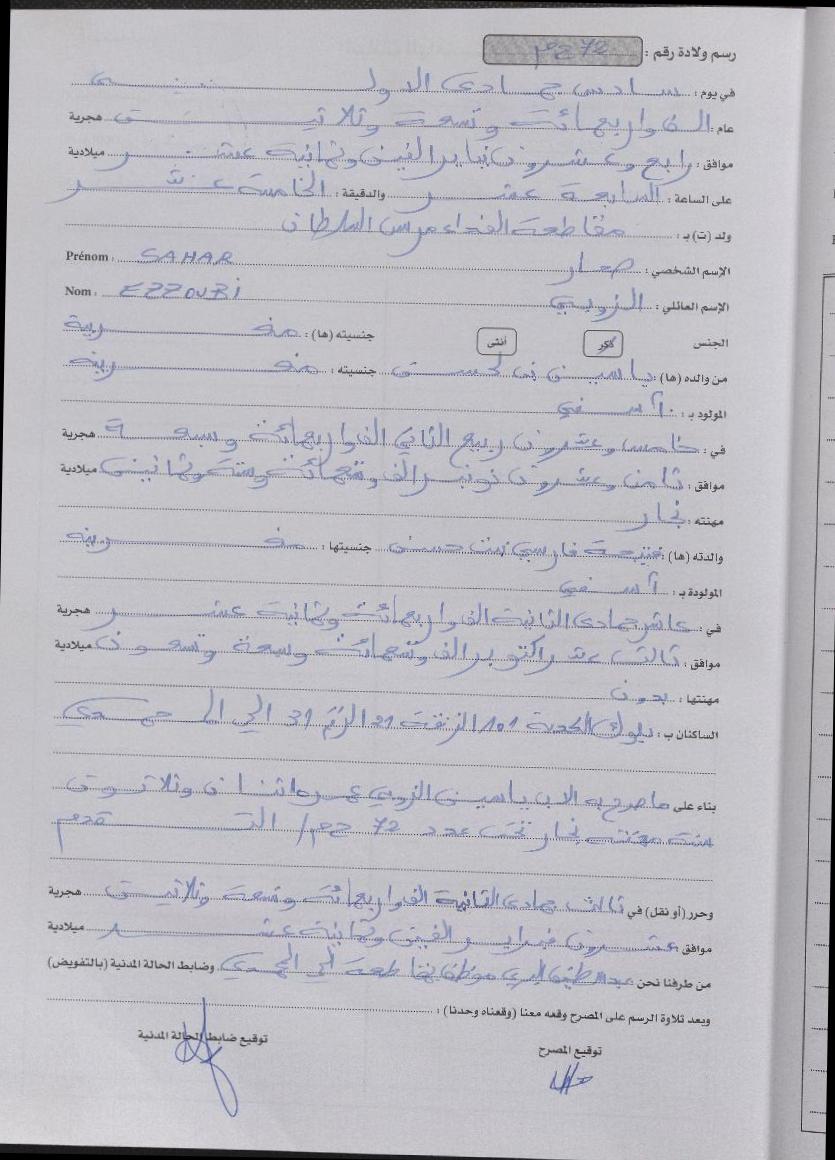 رسم ولادة رقم : 72 ح م
في يوم : سادس جمادى الاولى
عام : الف واربعمائة وتسعة وثلاثين هجرية
موافق : رابع وعشرون يناير الفين وثمانية عشر ميلادية
على الساعة : السابعة عشر والدقيقة : الخامسة عشر
ولد (ت) بـ : مقاطعة الفداء مرس السلطان
الإسم الشخصي : صحار Prénom : SAHAR
الإسم العائلي : الزوبي Nom : EZZOUBi
الجنس ذكر أنثى جنسيته (ها) : مغربية
من والده (ها) : ياسين بن لحسن جنسيته : مغربية
المولود بـ : آسفي
في : خامس وعشرون ربيع الثاني الف واربعمائة وسبعة هجرية
موافق : ثامن وعشرون نونبر الف وتسعمائة وستة وثمانين ميلادية
مهنته : نجار
والدته (ها) : فارسي بنت حسن جنسيتها : مغربية
المولودة بـ : آسفي
في : عاشر جمادى الثانية الف واربعمائة وثمانية عشر هجرية
موافق : ثالث عشر اكتوبر الف وتسعمائة وسبعة وتسعون ميلادية
مهنتها : بدون
الساكنان ب : ديور الكدية 101 الزنقة 21 الرقم 31 الحي المحمدي
بناء على ما صرح به الاب ياسين الزوبي عمره اثنان وثلاثون
سنة مهنته نجار تحت عدد 72 ح م / التقدم
وحرر (أو نقل) في ثالث جمادى الثانية الف واربعمائة وتسعة وثلاثين هجرية
موافق عشرون فبراير الفين وثمانية عشر ميلادية
من طرفنا نحن موظف بمقاطعة الحي المحمدي وضابط الحالة المدنية (بالتفويض)
وبعد تلاوة الرسم على المصرح وقعه معنا (وقعناه وحدنا) :
توقيع المصرح توقيع ضابط الحالة المدنية